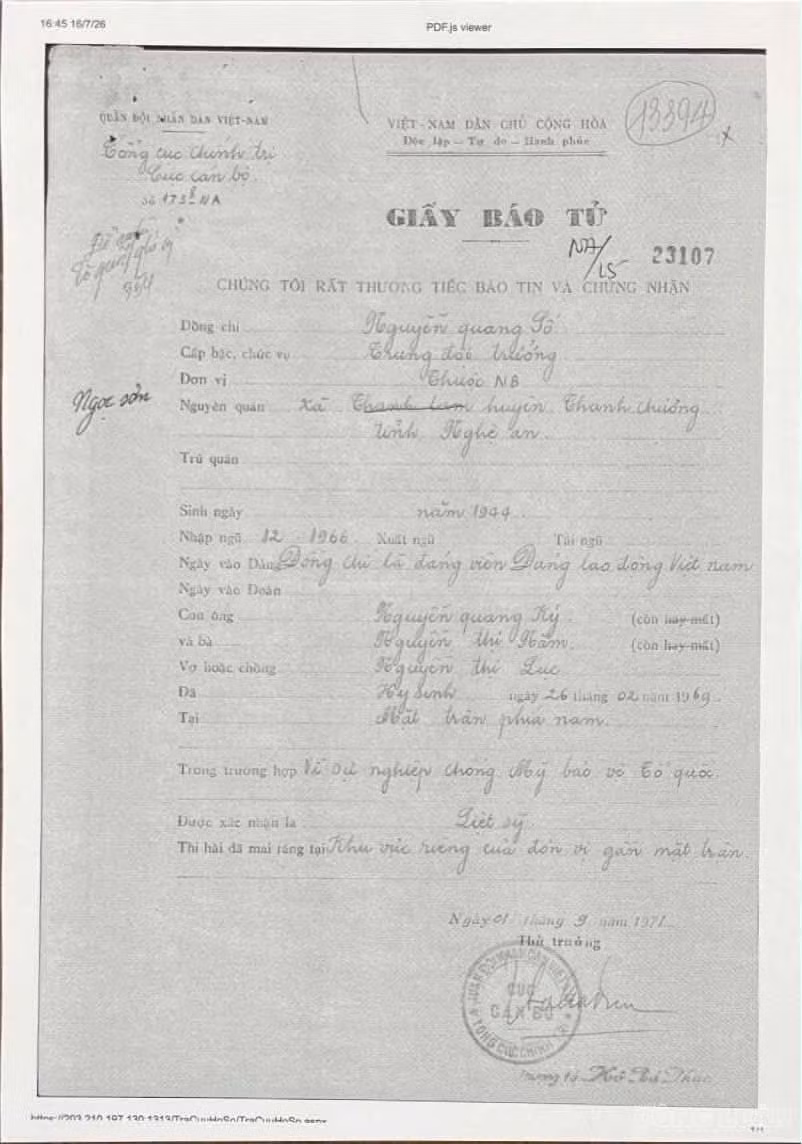 16:45 16/7/26
PDF.js viewer
QUÂN ĐỘI NHÂN DÂN VIỆT-NAM
Tổng cục chính trị
Cục cán bộ
Số 173 /NA
VIỆT-NAM DÂN CHỦ CỘNG HÒA
Độc lập – Tự do – Hạnh phúc
13394
x
GIẤY BÁO TỬ
NA/LS
23107
CHÚNG TÔI RẤT THƯƠNG TIẾC BÁO TIN VÀ CHỨNG NHẬN
Đồng chí Nguyễn quang Số
Cấp bậc, chức vụ Trung đội trưởng
Đơn vị Thuộc NB
Ngọc sơn
Nguyên quán Xã Thanh lam huyện Thanh chương
tỉnh Nghệ an
Trú quán
Sinh ngày năm 1944
Nhập ngũ 12 - 1966 Xuất ngũ Tái ngũ
Ngày vào Đảng Đồng chí là đảng viên Đảng lao động Việt nam
Ngày vào Đoàn
Con ông Nguyễn quang Ký (còn hay mất)
và bà Nguyễn thị Năm (còn hay mất)
Vợ hoặc chồng Nguyễn thị Lục
Đã Hy sinh ngày 26 tháng 02 năm 1969
Tại Mặt trận phía nam.
Trong trường hợp Vì sự nghiệp chống Mỹ bảo vệ Tổ quốc.
Được xác nhận là Liệt sỹ.
Thi hài đã mai táng tại Khu vực riêng của đơn vị gần mặt trận.
Ngày 01 tháng 9 năm 1971
Thủ trưởng
QUÂN ĐỘI NHÂN DÂN VIỆT NAM
CỤC
CÁN BỘ
TỔNG CỤC CHÍNH TRỊ
Thượng tá Hồ Bá Phúc
1/1